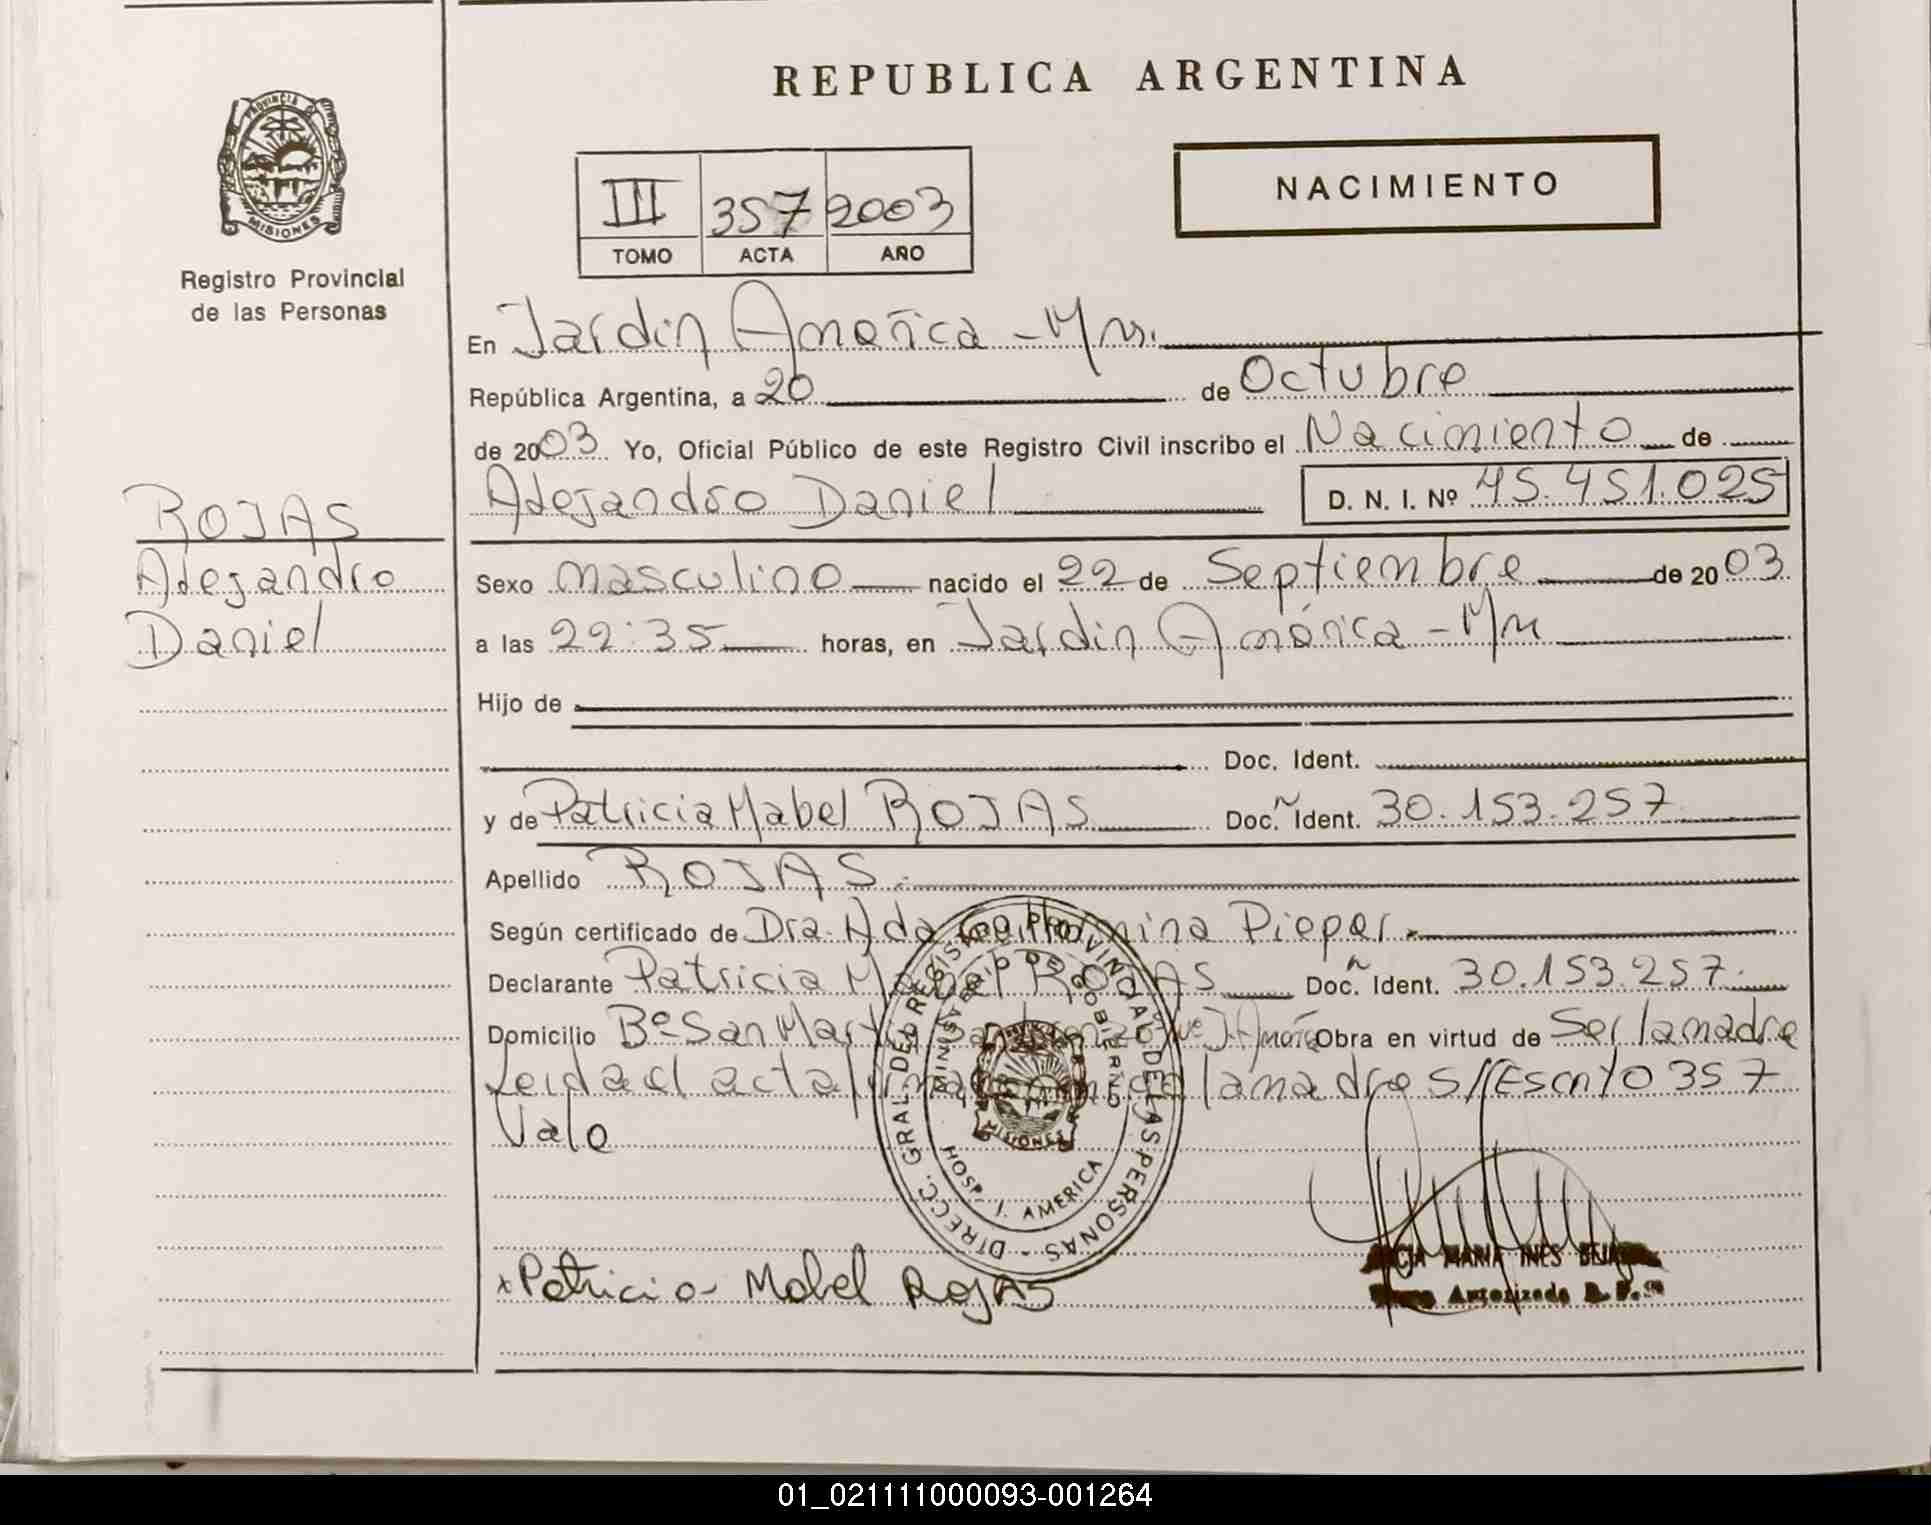 REPUBLICA ARGENTINA
PROVINCIA DE
MISIONES
Registro Provincial
de las Personas
NACIMIENTO
III 357 2003
TOMO ACTA AÑO
En Jardin America - Mns.
República Argentina, a 20 de Octubre
de 2003 Yo, Oficial Público de este Registro Civil inscribo el Nacimiento de
Alejandro Daniel D. N. I. Nº 45.451.025
ROJAS
Alejandro
Daniel
Sexo masculino nacido el 22 de Septiembre de 2003
a las 22:35 horas, en Jardin América - Mns
Hijo de
Doc. Ident.
y de Patricia Mabel ROJAS Doc. Ident. 30.153.257
Apellido ROJAS.
Según certificado de Dra. Ada Pieper
Declarante Patricia Mabel ROJAS Doc. Ident. 30.153.257.
Domicilio Bº San Martin Obra en virtud de Ser la madre
Leida el acta la madre S//Escrito 357
Vale
DIRECC. GRAL. DEL REGISTRO PROVINCIAL DE LAS PERSONAS
MINISTERIO DE GOBIERNO
MISIONES
HOSP. J. AMERICA
x Patricia Mabel Rojas
MARIA INES
Autorizada
01_021111000093-001264